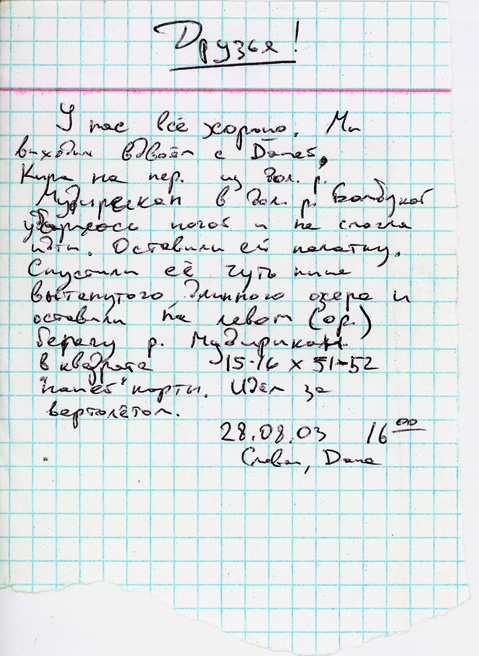 Друзья!
У нас всё хорошо. Мы
выходим вдвоём с Даней,
Кира на пер. из дол. р.
Мудирикан в дол. р. Балбукой
ударилась ногой и не смогла
идти. Оставили ей палатку.
Спустили её чуть ниже
вытянутого длинного озера и
оставили на левом (ор.)
берегу р. Мудирикан
в квадрате 15-16 х 51-52
"нашей" карты. Идём за
вертолётом.
28.08.03 16 00
Слава, Даня